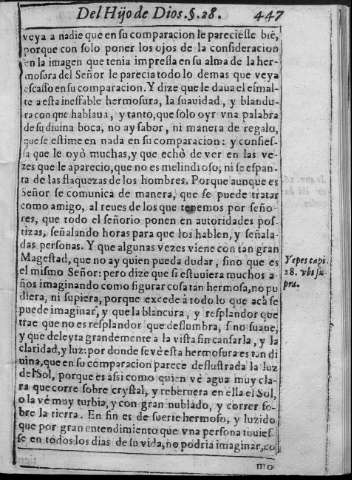 Del Hijo de Dios. §. 28. 447
veya a nadie que en su comparacion le pareciesse biē,
porque con solo poner los ojos de la consideracion
en la imagen que tenia impressa en su alma de la her-
mosura del Señor le parecia todo lo demas que veya
escasso en su comparacion. Y dize que le daua el esmal-
te a esta ineffable hermosura, la suauidad, y blandu-
ra con que hablaua, y tanto, que solo oyr vna palabra
de su diuina boca, no ay sabor, ni manera de regalo,
que se estime en nada en su comparacion: y confies-
sa que le oyò muchas, y que echò de ver en las ve-
zes que le aparecio, que no es melindroso; ni se espan-
ta de las flaquezas de los hombres. Porque aunque es
Señor se comunica de manera, que se puede tratar
como amigo, al reues de los que tenemos por seño-
res, que todo el señorio ponen en autoridades pos-
tizas, señalando horas para que los hablen, y señala-
das personas. Y que algunas vezes viene con tan gran
Magestad, que no ay quien pueda dudar, sino que es
el mismo Señor: pero dize que si estuuiera muchos a-
ños imaginando como figurar cosa tan hermosa, no pu
diera, ni supiera, porque excede à todo lo que acà se
puede imaginar, y que la blancura, y resplandor que
trae que no es resplandor que deslumbra, sino suaue,
y que deleyta grandemente a la vista sin cansarla, y la
claridad, y luz: por donde se vè esta hermosura es tan di
uina, que en su comparacion parece deslustrada la luz
del Sol, porque es assi como quien vè agua muy cla-
ra que corre sobre crystal, y reberuera en ella el Sol,
o la vè muy turbia, y con gran nublado, y correr so-
bre la tierra. En fin es de suerte hermoso, y luzido
que por gran entendimiento que vna persona tuuies-
se en todos los dias de su vida, no podria imaginar, co
mo
Yepes capi.
28. vbi su
pra.